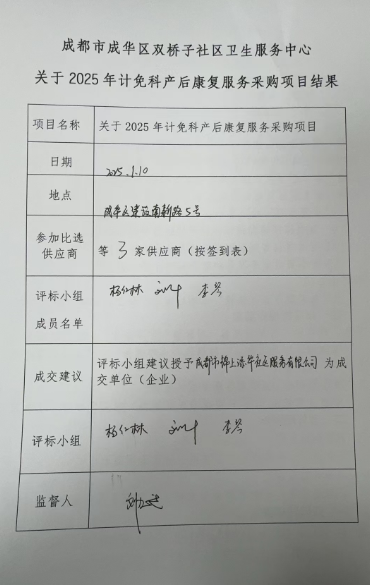 成都市成华区双桥子社区卫生服务中心
关于 2025 年计免科产后康复服务采购项目结果
项目名称
关于 2025 年计免科产后康复服务采购项目
日期
2025.1.10
地点
成华区建设南新路5号
参加比选
供应商
等 3 家供应商（按签到表）
评标小组
成员名单
杨仁林
李琴
成交建议
评标小组建议授予成都市锦上添华社区服务有限公司为成
交单位（企业）
评标小组
杨仁林
李琴
监督人